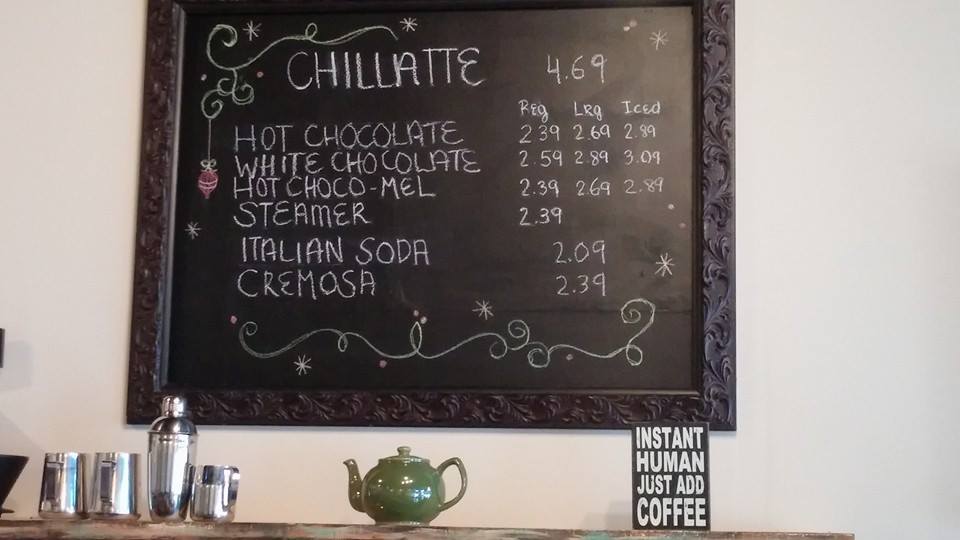 CHILLATTE 4.69
Reg Lrg Iced
HOT CHOCOLATE 2.39 2.69 2.89
WHITE CHOCOLATE 2.59 2.89 3.09
HOT CHOCO-MEL 2.39 2.69 2.89
STEAMER 2.39
ITALIAN SODA 2.09
CREMOSA 2.39
INSTANT
HUMAN
JUST ADD
COFFEE